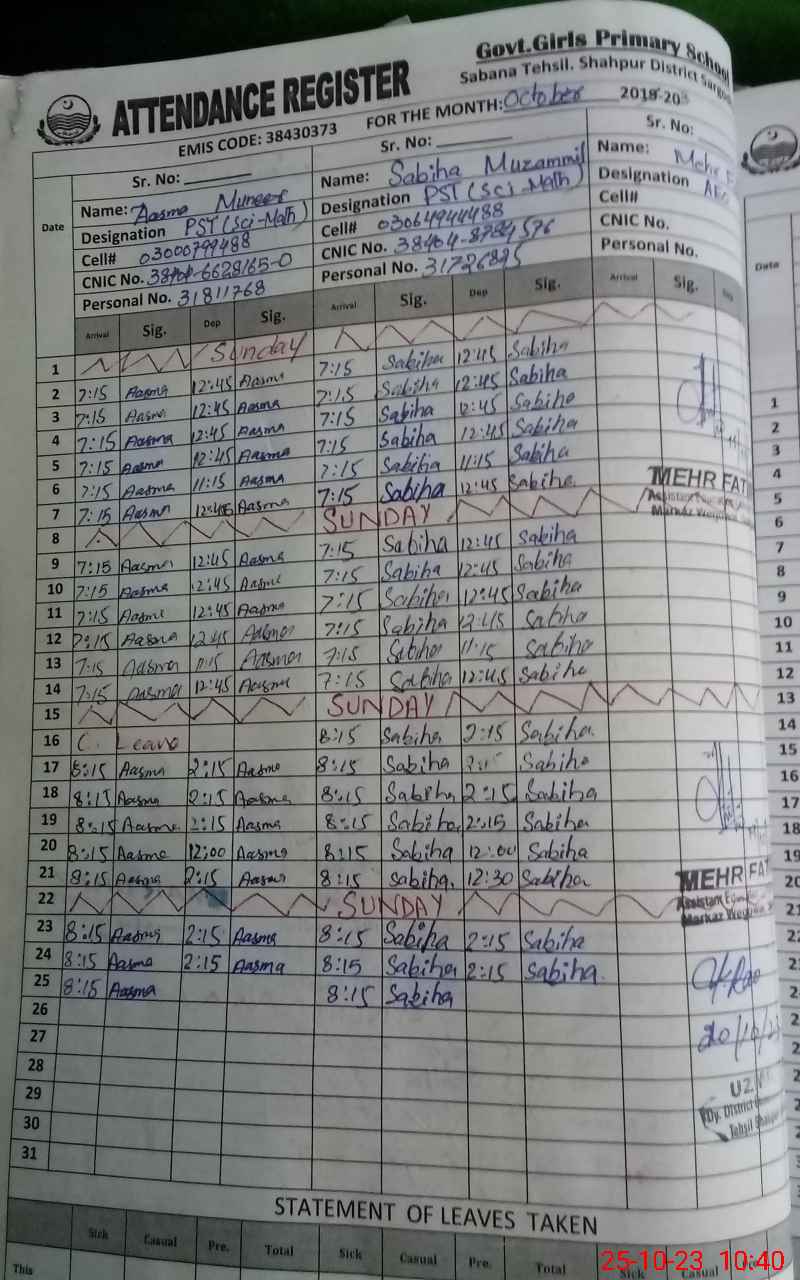 Govt.Girls Primary School
Sabana Tehsil. Shahpur District
ATTENDANCE REGISTER
EMIS CODE: 38430373 FOR THE MONTH: October
Date
Sr. No: Sr. No: Sr. No:
Name: Aasma Muneer Name: Sabiha Muzammil Name: Mehr
Designation PST (Sci-Math) Designation PST (Sci-Math) Designation
Cell# 03000799488 Cell# 03064944488 Cell#
CNIC No. CNIC No. CNIC No.
Personal No. 31811768 Personal No. Personal No.
Arrival Sig. Dep Sig. Arrival Sig. Dep Sig. Arrival Sig. Dep
1 Sunday
2 7:15 Aasma 12:45 Aasma 7:15 Sabiha 12:45 Sabiha
3 7:15 Aasma 12:45 Aasma 7:15 Sabiha 12:45 Sabiha
4 7:15 Aasma 12:45 Aasma 7:15 Sabiha 12:45 Sabiha
5 7:15 Aasma 12:45 Aasma 7:15 Sabiha 12:45 Sabiha
6 7:15 Aasma 11:15 Aasma 7:15 Sabiha 11:15 Sabiha
7 7:15 Aasma 12:45 Aasma 7:15 Sabiha 12:45 Sabiha
8 SUNDAY
9 7:15 Aasma 12:45 Aasma 7:15 Sabiha 12:45 Sabiha
10 7:15 Aasma 12:45 Aasma 7:15 Sabiha 12:45 Sabiha
11 7:15 Aasma 12:45 Aasma 7:15 Sabiha 12:45 Sabiha
12 7:15 Aasma 12:45 Aasma 7:15 Sabiha 12:45 Sabiha
13 7:15 Aasma 11:15 Aasma 7:15 Sabiha 11:15 Sabiha
14 7:15 Aasma 12:45 Aasma 7:15 Sabiha 12:45 Sabiha
15 SUNDAY
16 C. Leave 8:15 Sabiha 2:15 Sabiha
17 8:15 Aasma 2:15 Aasma 8:15 Sabiha 2:15 Sabiha
18 8:15 Aasma 2:15 Aasma 8:15 Sabiha 2:15 Sabiha
19 8:15 Aasma 2:15 Aasma 8:15 Sabiha 2:15 Sabiha
20 8:15 Aasma 12:00 Aasma 8:15 Sabiha 12:00 Sabiha
21 8:15 Aasma 2:15 Aasma 8:15 Sabiha 12:30 Sabiha
22 SUNDAY
23 8:15 Aasma 2:15 Aasma 8:15 Sabiha 2:15 Sabiha
24 8:15 Aasma 2:15 Aasma 8:15 Sabiha 2:15 Sabiha
25 8:15 Aasma 8:15 Sabiha
26
27
28
29
30
31
MEHR FAT
Assistant
Markaz
MEHR FAT
Assistant
Markaz
Dy. District
Tehsil
STATEMENT OF LEAVES TAKEN
Sick Casual Pre. Total Sick Casual Pre. Total Sick Casual
This
Date
1
2
3
4
5
6
7
8
9
10
11
12
13
14
15
16
17
18
19
20
21
25-10-23 10:40